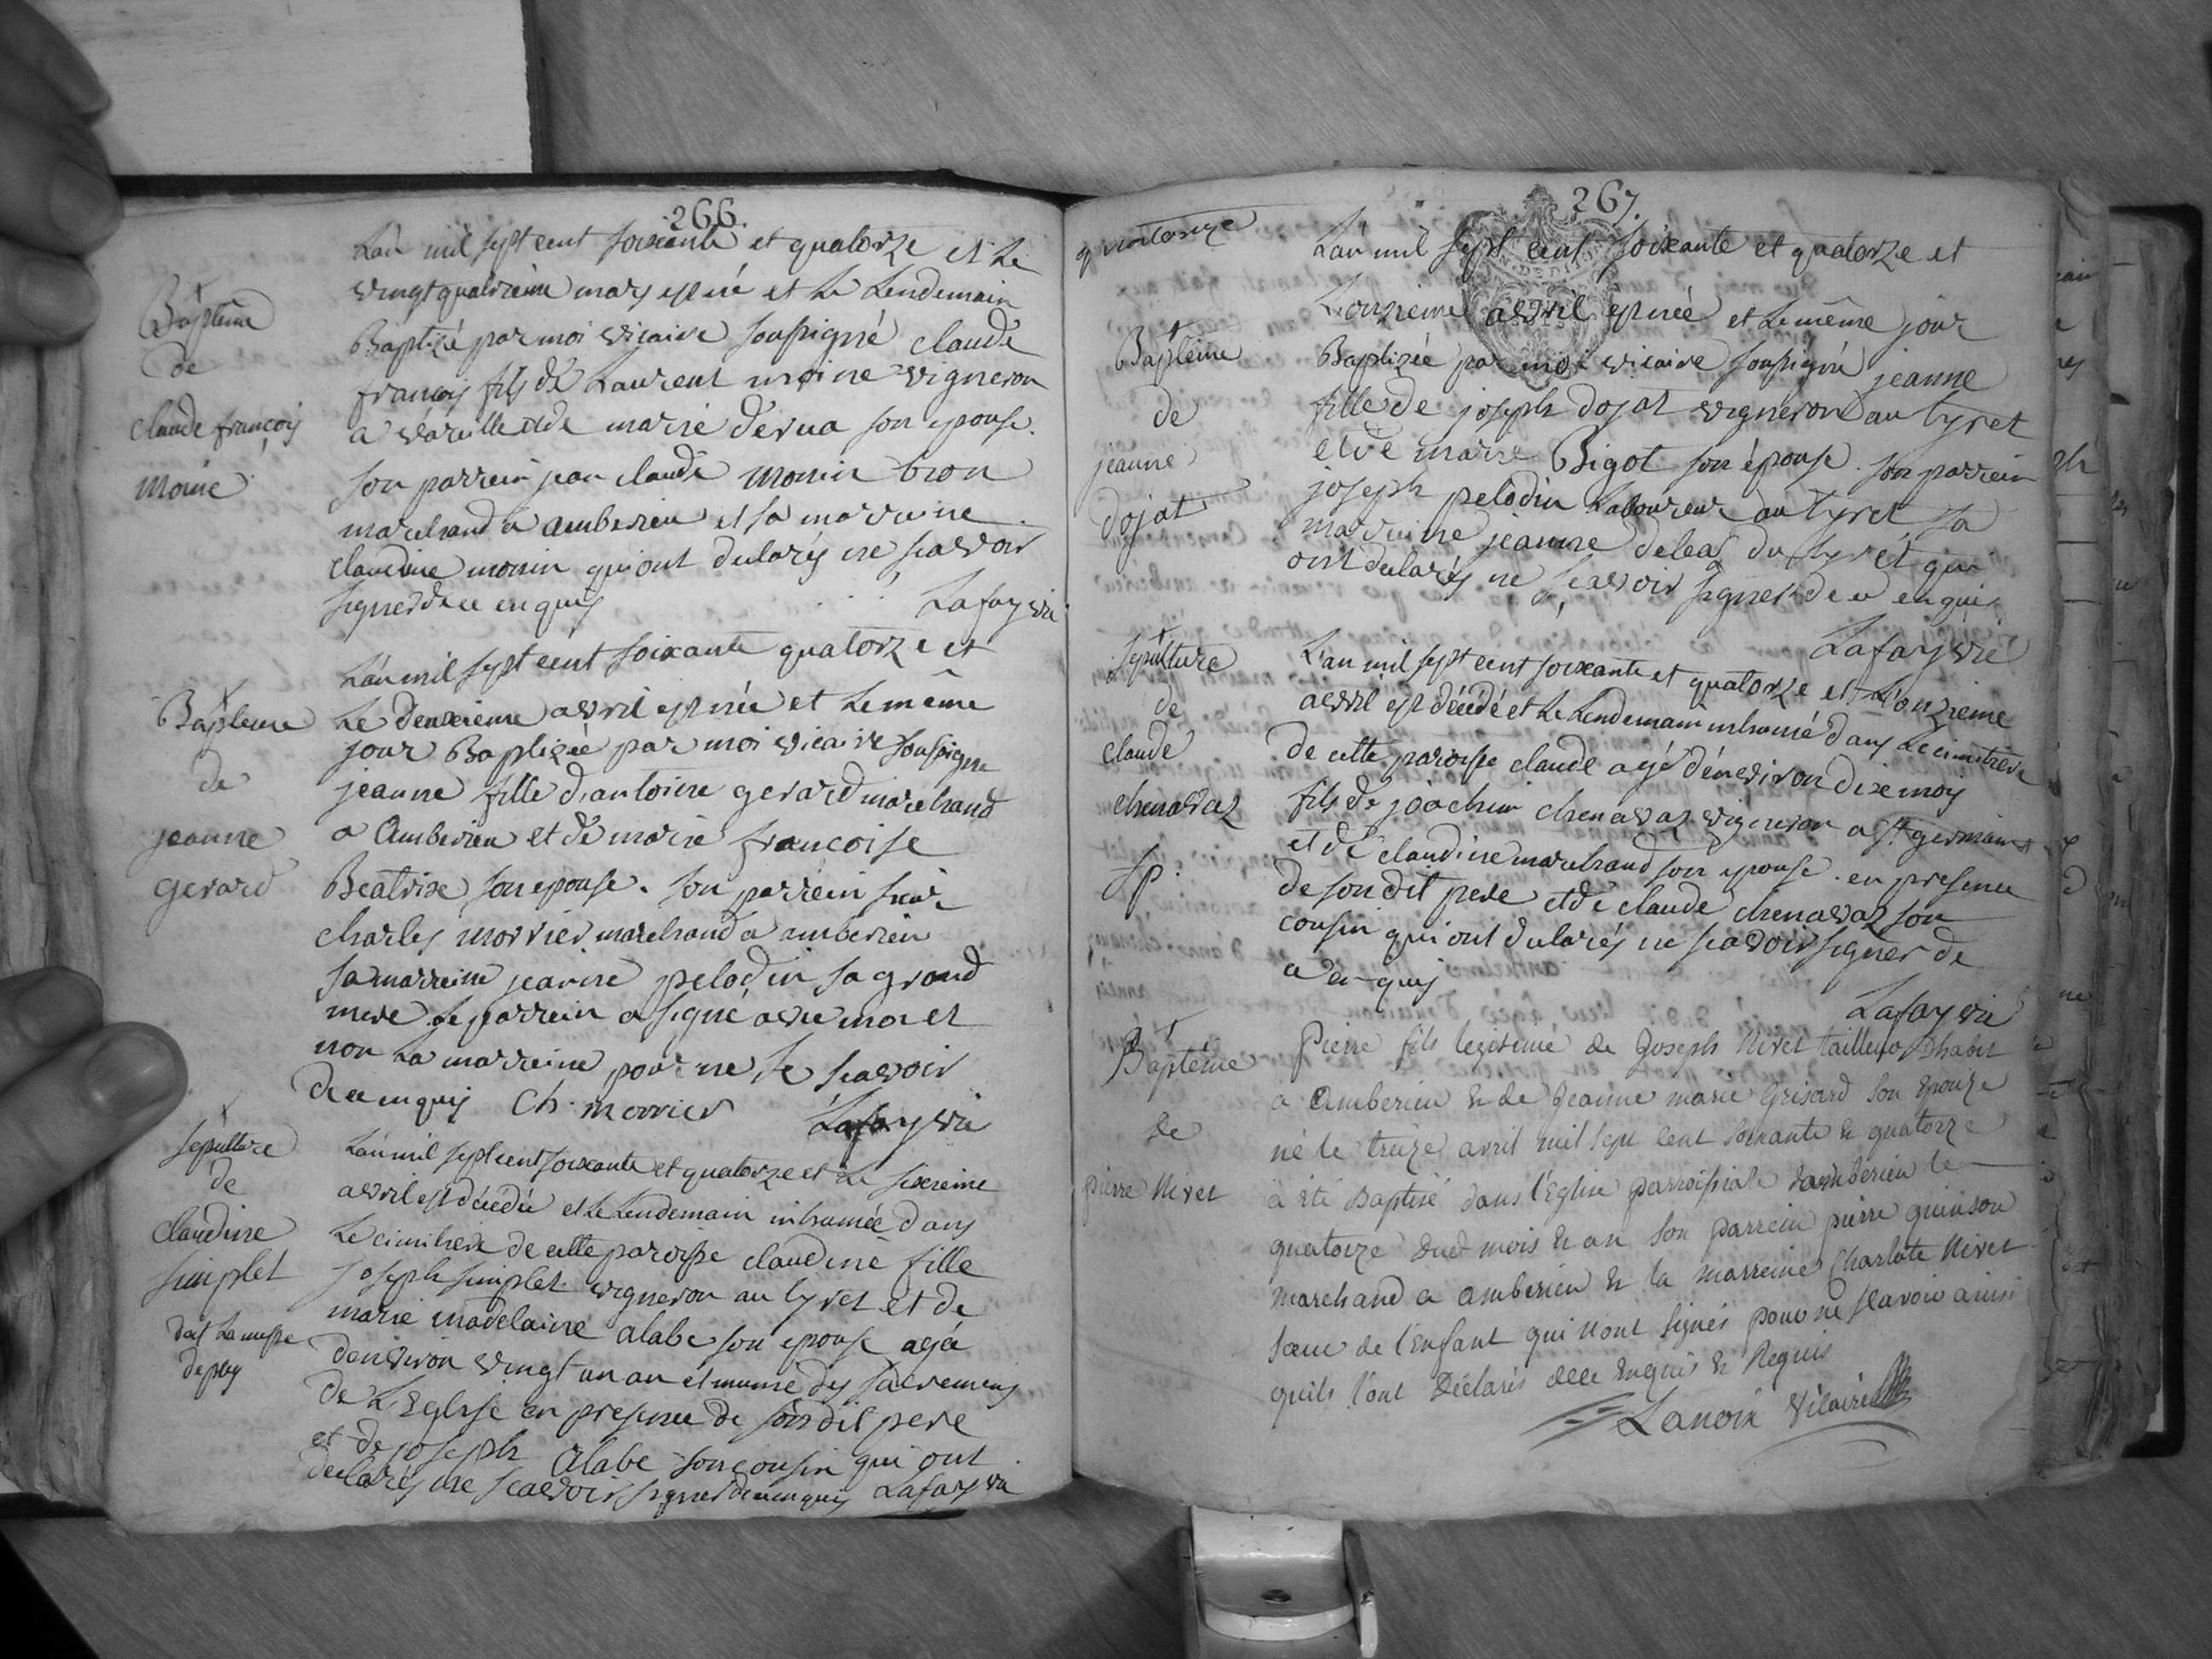 266.
L'an mil sept cent soixante et quatorze et le
vingt quatrieme mars est né et le lendemain
Baptême
Baptizé par moi vicaire soussigné claude
de
françois fils de Laurent moine vigneron
claude françois
a vareille et de marie derua son epouse.
moine
son parrein jean claude monin bron
marchand a amberieu et sa marreine
claudine monin qui ont declarés ne scavoir
signer de ce enquis Lafay vic
L'an mil sept cent soixante quatorze et
Bapteme
le deuxieme avril est née et le même
jour Baptizée par moi vicaire soussigné
de
jeanne fille d'antoine gerard marchand
jeanne
a Amberieu et de marie francoise
gerard
Beatrix son epouse. son parrein sieur
charles morrier marchand a amberieu
sa marreine jeanne pelodin sa grand
mere le parrein a signé avec moi et
non la marreine pour ne le scavoir
de ce enquis Ch. morrier Lafay vic
sepulture
L'an mil sept cent soixante et quatorze et le sixieme
de
avril est décédée et le lendemain inhumée dans
claudine
le cimitiere de cette paroisse claudine fille
simplet
joseph simplet vigneron au tyret et de
marie madelaine alabe son epouse agée
denviron vingt un an et munie des sacremens
de L'Eglise en presence de son dit pere
et de joseph alabe son cousin qui ont
declarés ne scavoir signer de ce enquis Lafay vic
267.
quatorze
L'an mil sept cent soixante et quatorze et
L'onzieme avril est née et le même jour
Baptême
Baptizée par moi vicaire soussigné jeanne
de
fille de joseph dojat vigneron au tyret
jeanne
et de marie Bigot son épouse. son parrein
dojat
joseph pelodin laboureur au tyret sa
marreine jeanne deleas du tyret qui
ont declarés ne scavoir signer de ce enquis
Lafay vic
sepulture
L'an mil sept cent soixante et quatorze et L'onzieme
de
avril est décédé et le lendemain inhumé dans le cimitiere
claude
de cette paroisse claude agé dénviron dix mois
chenavaz
fils de joachim chenavaz vigneron a st germain
et de claudine marchand son epouse. en presence
sp.
de son dit pere et de claude chenavaz son
cousin qui ont declarés ne scavoir signer de
ce enquis
Lafay vic
Baptême
Pierre fils legitime de Joseph Nivet tailleur d'habit
a Amberieu & de Jeanne marie Grisard son Epouze
de
né le treize avril mil sept cent soixante & quatorze
pierre Nivet
a été Baptisé dans l'Eglise parroissiale damberieu le
quatorze dud. mois & an son parrein pierre guinson
marchand a amberieu & la marreine Charlote Nivet
sœur de l'Enfant qui n'ont signés pour ne scavoir ainsi
quils l'ont Déclarés de ce Enquis & Requis
Lanoix vicaire